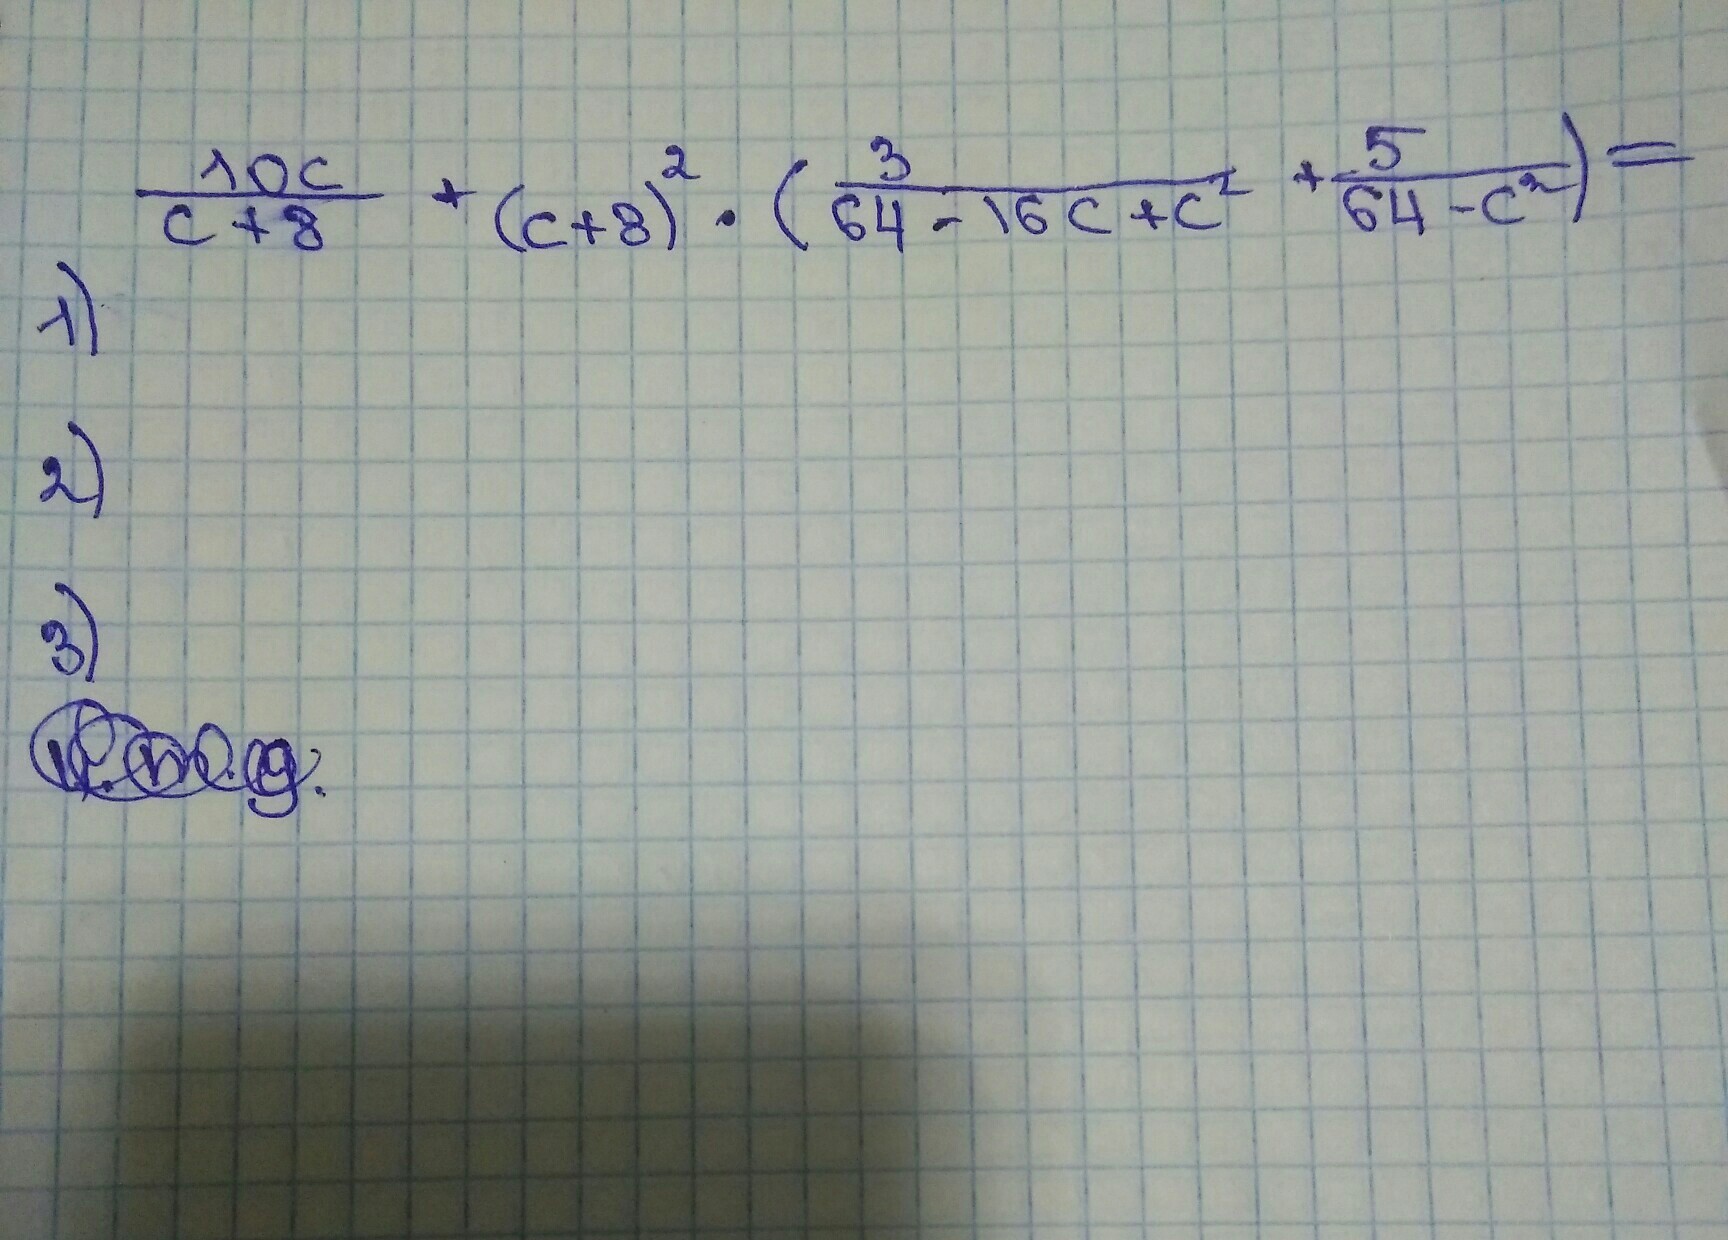 10c/(c+8) + (c+8)² · (3/(64-16c+c²) + 5/(64-c²)) =
1)
2)
3)